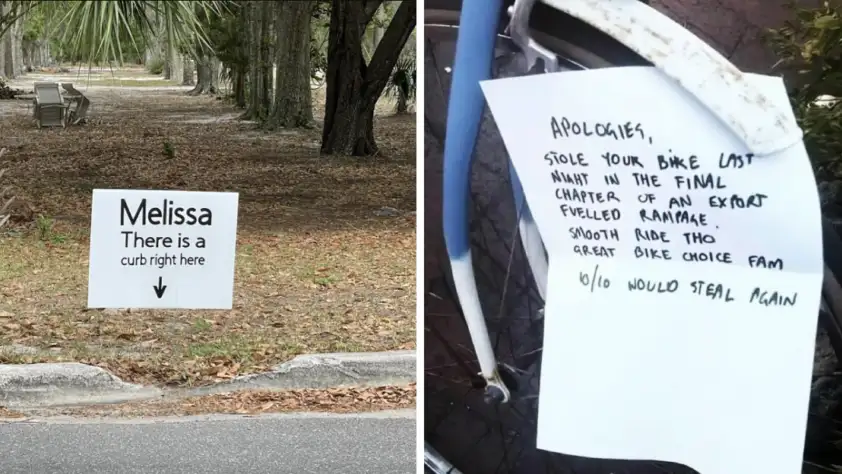 Melissa
There is a
curb right here
APOLOGIES,
STOLE YOUR BIKE LAST
NIGHT IN THE FINAL
CHAPTER OF AN EXPORT
FUELLED RAMPAGE.
SMOOTH RIDE THO
GREAT BIKE CHOICE FAM
10/10 WOULD STEAL AGAIN